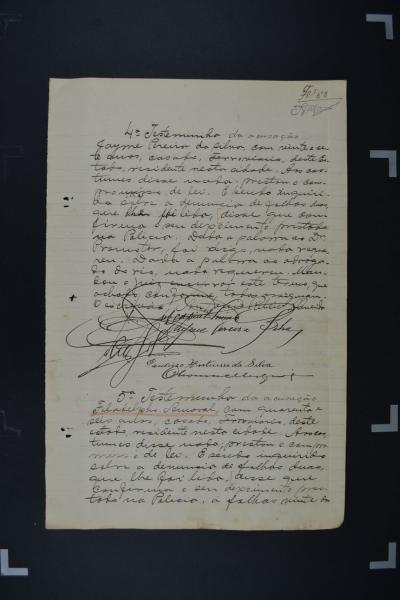 Fl. 88
4ª Testemunha da acusação
Jayme Pereira da Silva, com vinte e se-
te anos, casado, ferroviario, deste Es-
tado, residente nesta cidade. Aos cos-
tumes disse nada, prestou o com-
promisso de lei. E sendo inquiri-
da sobre a denuncia de folhas duas,
que lhe foi lida, disse que con-
firma o seu depoimento prestado
na Policia. Dada a palavra ao Dr.
Promotor, foi digo, nada reque-
reu. Dada a palavra ao advoga-
do do réo, nada requereu. Man-
dou o Juiz encerrar este termo, que
achado conforme, todos assignam.
Jayme Pereira Silva
da Silva
5ª Testemunha da acusação
Amaral, com quarenta e
seis annos, casado, ferroviario, deste
estado, residente nesta cidade. Aos cos-
tumes disse nada, prestou o compro-
misso de lei. E sendo inquirido
sobre a denuncia de folhas duas,
que lhe foi lida, disse que
confirma o seu depoimento pres-
tado na Policia, a folhas vinte